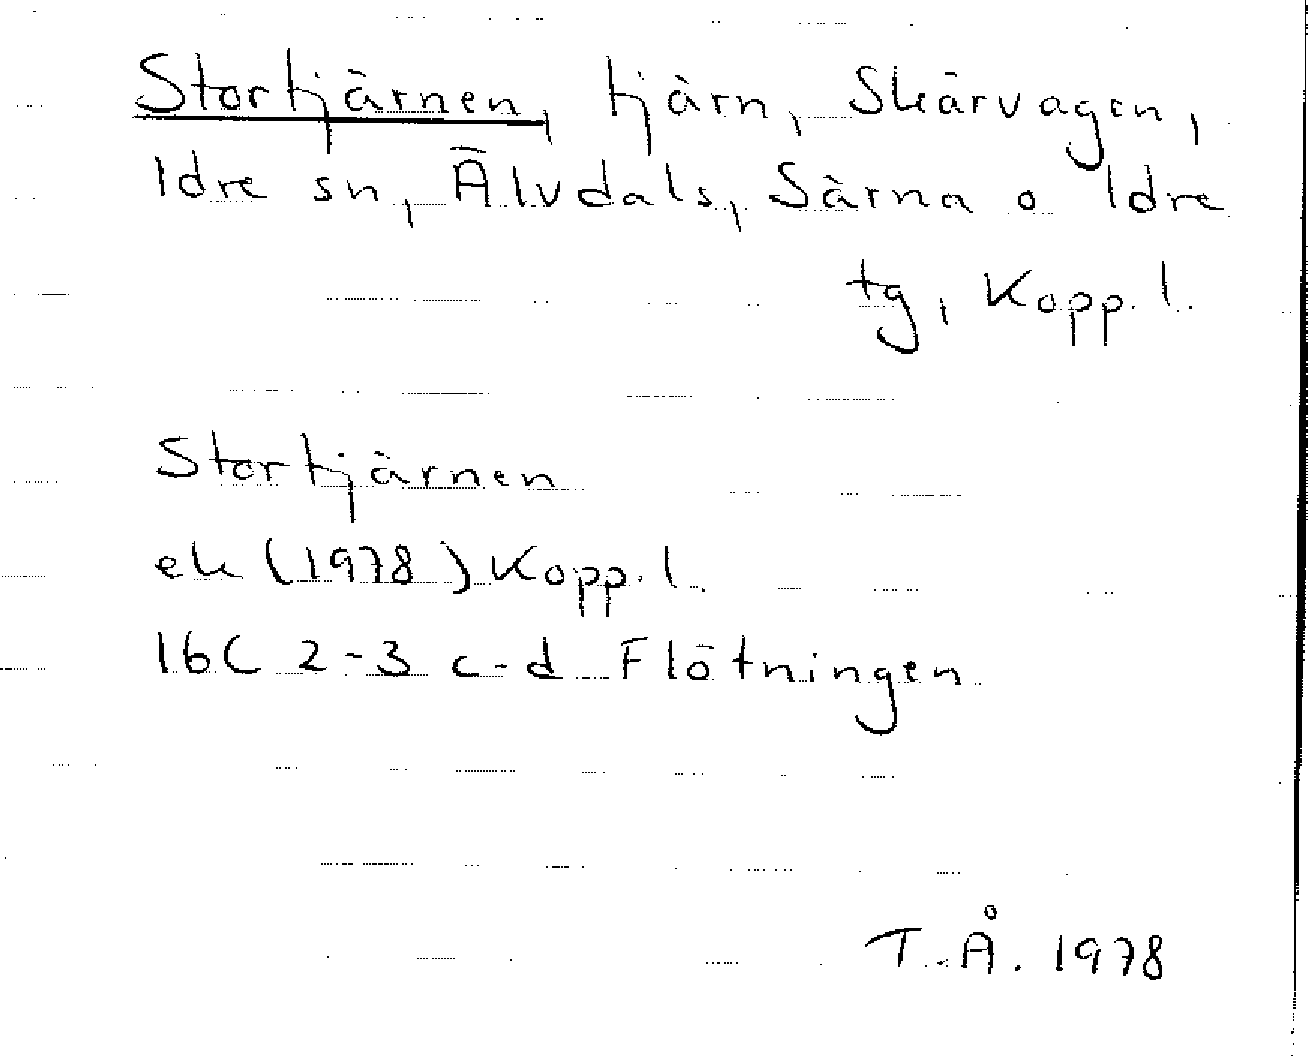 Stortjärnen, tjärn, Skärvagen,
Idre sn, Älvdals, Särna o Idre
tg, Kopp. l.
Stortjärnen
ek (1978) Kopp. l.
16C 2-3 c-d Flötningen
T.Å. 1978